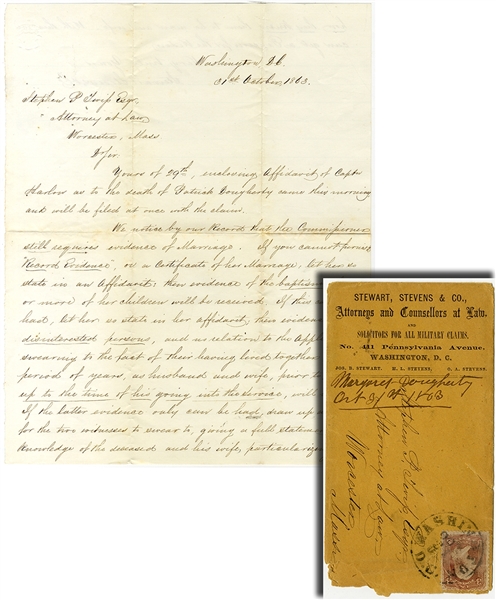 Washington D.C.
31st October, 1863.
Stephen P. Twiss Esqr.
Attorney at Law
Worcester, Mass
D Sir
Yours of 29th, enclosing Affidavit, of Capt
Harlow as to the death of Patrick Dougherty came this morning
and will be filed at once with the claim.
We notice by our Record that the Commissioner
still requires evidence of Marriage. If you cannot
"Record Evidence", or a Certificate of her Marriage, let her so
state in an Affidavit; then evidence of the baptism
or more of her children will be received. If this
had, let her so state in her affidavit, then evidence
disinterested persons, and no relation to the
swearing to the fact of their having lived together
period of years, as husband and wife, prior to
up to the time of his going into the service, will
If the latter evidence only can be had, draw up
for the two witnesses to swear to, giving a full
knowledge of the deceased and his wife,
STEWART, STEVENS & CO.,
Attorneys and Counsellors at Law.
AND
SOLICITORS FOR ALL MILITARY CLAIMS.
No. 411 Pennsylvania Avenue,
WASHINGTON, D. C.
JOS. B. STEWART. H. L. STEVENS, G. A. STEVENS.
Margaret Dougherty
Oct 31st 1863
Stephen P. Twiss Esqr
Attorney at Law
Worcester